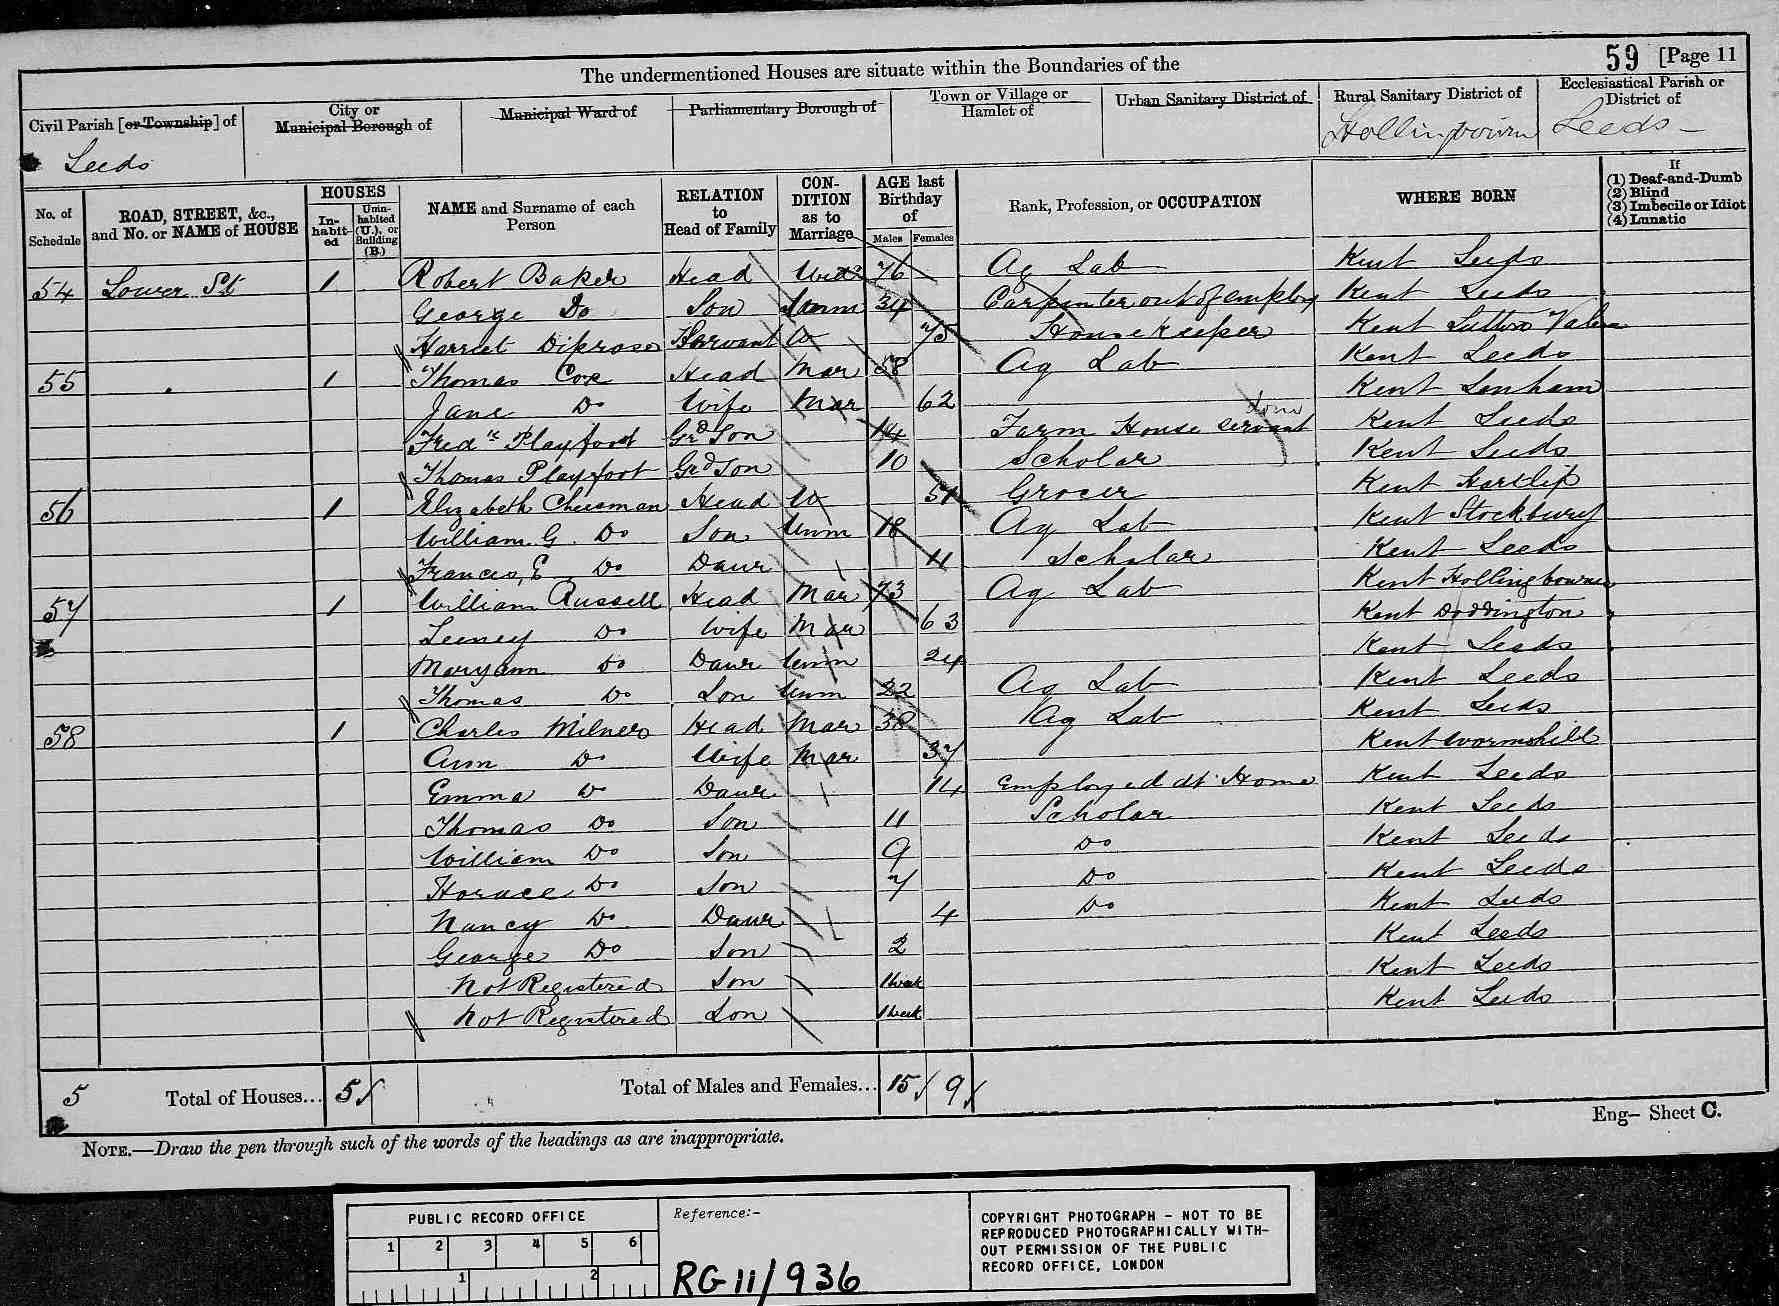 59 [Page 11
The undermentioned Houses are situate within the Boundaries of the
Civil Parish [or Township] of
City or Municipal Borough of
Municipal Ward of
Parliamentary Borough of
Town or Village or Hamlet of
Urban Sanitary District of
Rural Sanitary District of
Ecclesiastical Parish or District of
Leeds
Hollingbourn
Leeds
No. of Schedule
ROAD, STREET, &c., and No. or NAME of HOUSE
HOUSES
In-habit-ed
Unin-habited (U.), or Building (B.)
NAME and Surname of each Person
RELATION to Head of Family
CON-DITION as to Marriage
AGE last Birthday of
Males Females
Rank, Profession, or OCCUPATION
WHERE BORN
If
(1) Deaf-and-Dumb
(2) Blind
(3) Imbecile or Idiot
(4) Lunatic
54 Lower St 1 Robert Baker Head Widr 76 Ag Lab Kent Leeds
George Do Son Unm 34 Carpenter out of employ Kent Leeds
Harriet Diprose Servant W 75 Housekeeper Kent Sutton Valence
55 1 Thomas Cox Head Mar 58 Ag Lab Kent Leeds
Jane Do Wife Mar 62 Kent Lenham
Fredk Playfoot Grd Son 14 Farm House Servant dom Kent Leeds
Thomas Playfoot Grd Son 10 Scholar Kent Leeds
56 1 Elizabeth Cheesman Head W 51 Grocer Kent Hartlip
William G. Do Son Unm 18 Ag Lab Kent Stockbury
Frances, E Do Daur 11 Scholar Kent Leeds
57 1 William Russell Head Mar 73 Ag Lab Kent Hollingbourne
Do Wife Mar 63 Kent Doddington
Maryann Do Daur Unm 24 Kent Leeds
Thomas Do Son Unm 22 Ag Lab Kent Leeds
58 1 Charles Milner Head Mar 38 Ag Lab Kent Leeds
Ann Do Wife Mar 37 Kent Wormshill
Emma Do Daur 14 Employed at Home Kent Leeds
Thomas Do Son 11 Scholar Kent Leeds
William Do Son 9 Do Kent Leeds
Horace Do Son 7 Do Kent Leeds
Nancy Do Daur 4 Do Kent Leeds
George Do Son 2 Kent Leeds
Not Registered Son 1 week Kent Leeds
Not Registered Son 1 week Kent Leeds
5 Total of Houses... 5 Total of Males and Females... 15 9
Eng- Sheet C.
NOTE.—Draw the pen through such of the words of the headings as are inappropriate.
PUBLIC RECORD OFFICE
1 2 3 4 5 6
1 2
Reference:-
RG 11/936
COPYRIGHT PHOTOGRAPH - NOT TO BE
REPRODUCED PHOTOGRAPHICALLY WITH-
OUT PERMISSION OF THE PUBLIC
RECORD OFFICE, LONDON